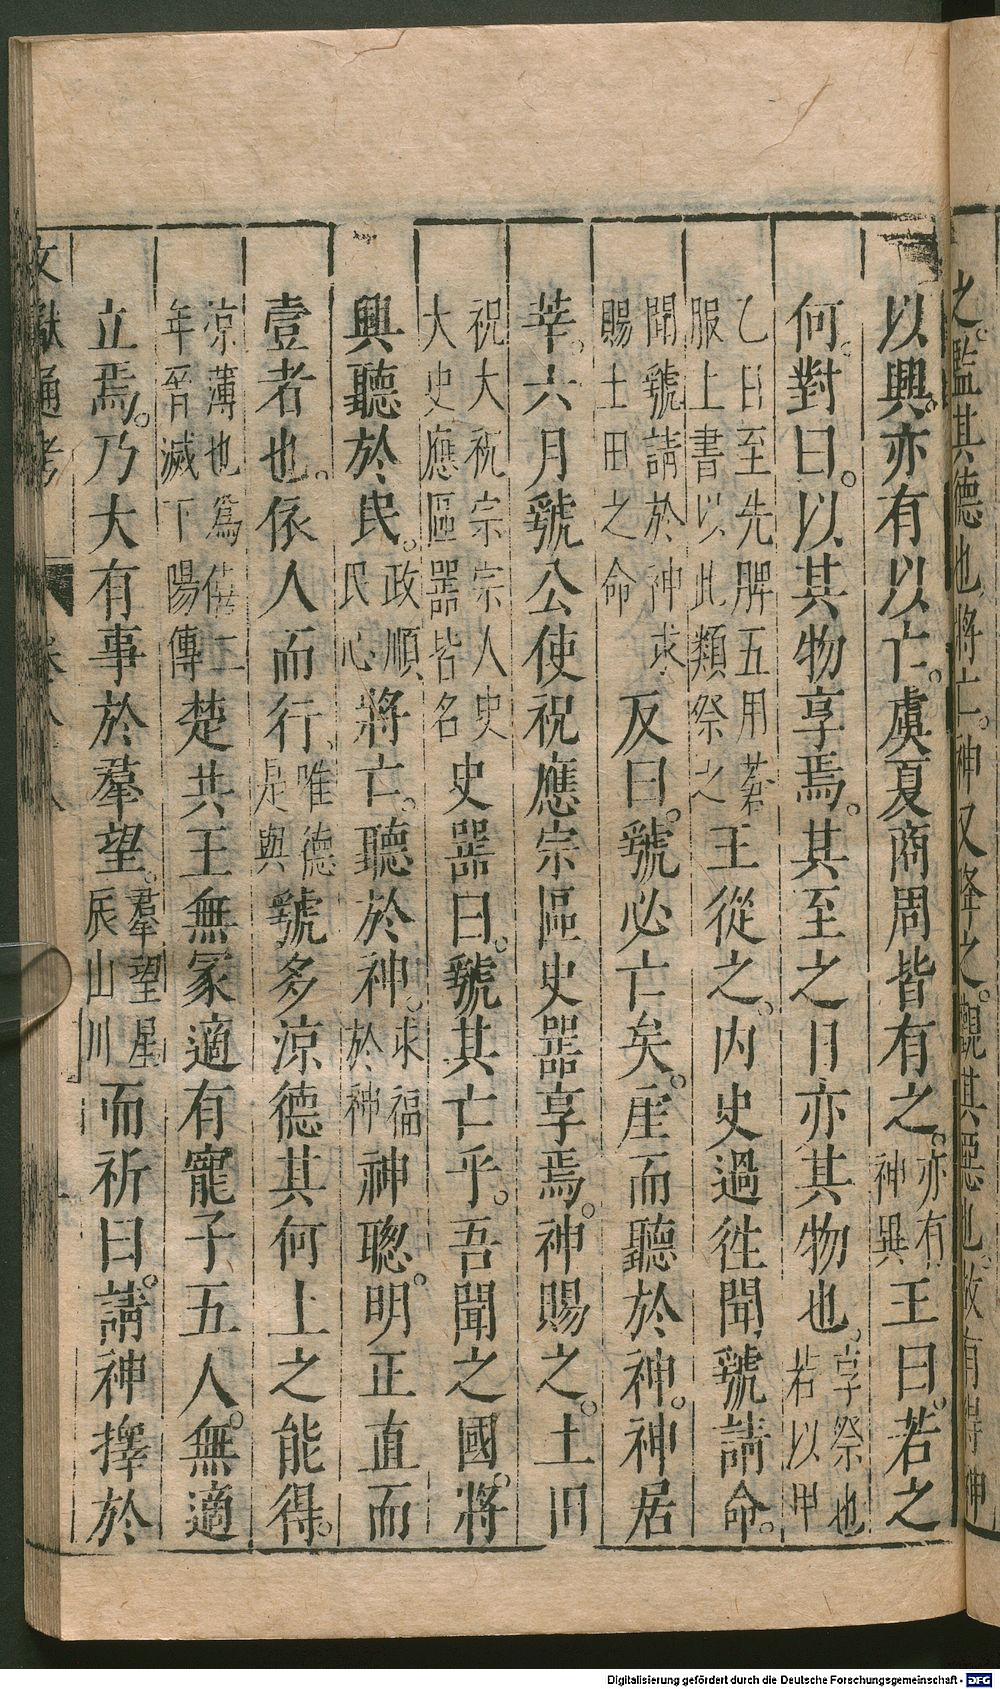 之。監其德也。將亡。神又降之。觀其惡也。故有得神
以興。亦有以亡。虞夏商周皆有之。亦有神異王曰。若之
何。對曰。以其物享焉。其至之日亦其物也。享祭也若以甲
乙日至先脾五用蒼服上書以此類祭之王從之。内史過徃聞虢請命。
聞虢請於神求賜土田之命反曰。虢必亡矣。虐而聽於神。神居
莘。六月虢公使祝應宗區史嚚享焉。神賜之。土田
祝大祝宗宗人史大史應區嚚皆名史嚚曰。虢其亡乎。吾聞之國。將
興聽於民。政順民心將亡。聽於神。求福於神神聰明。正直而
壹者也。依人而行。唯德是與虢多涼德其何土之能得。
涼薄也爲僖二年晉滅下陽傳楚共王無冢適有寵子五人。無適
立焉。乃大有事於羣望。羣望星辰山川而祈曰。請神擇於
文獻通考
Digitalisierung gefördert durch die Deutsche Forschungsgemeinschaft - DFG